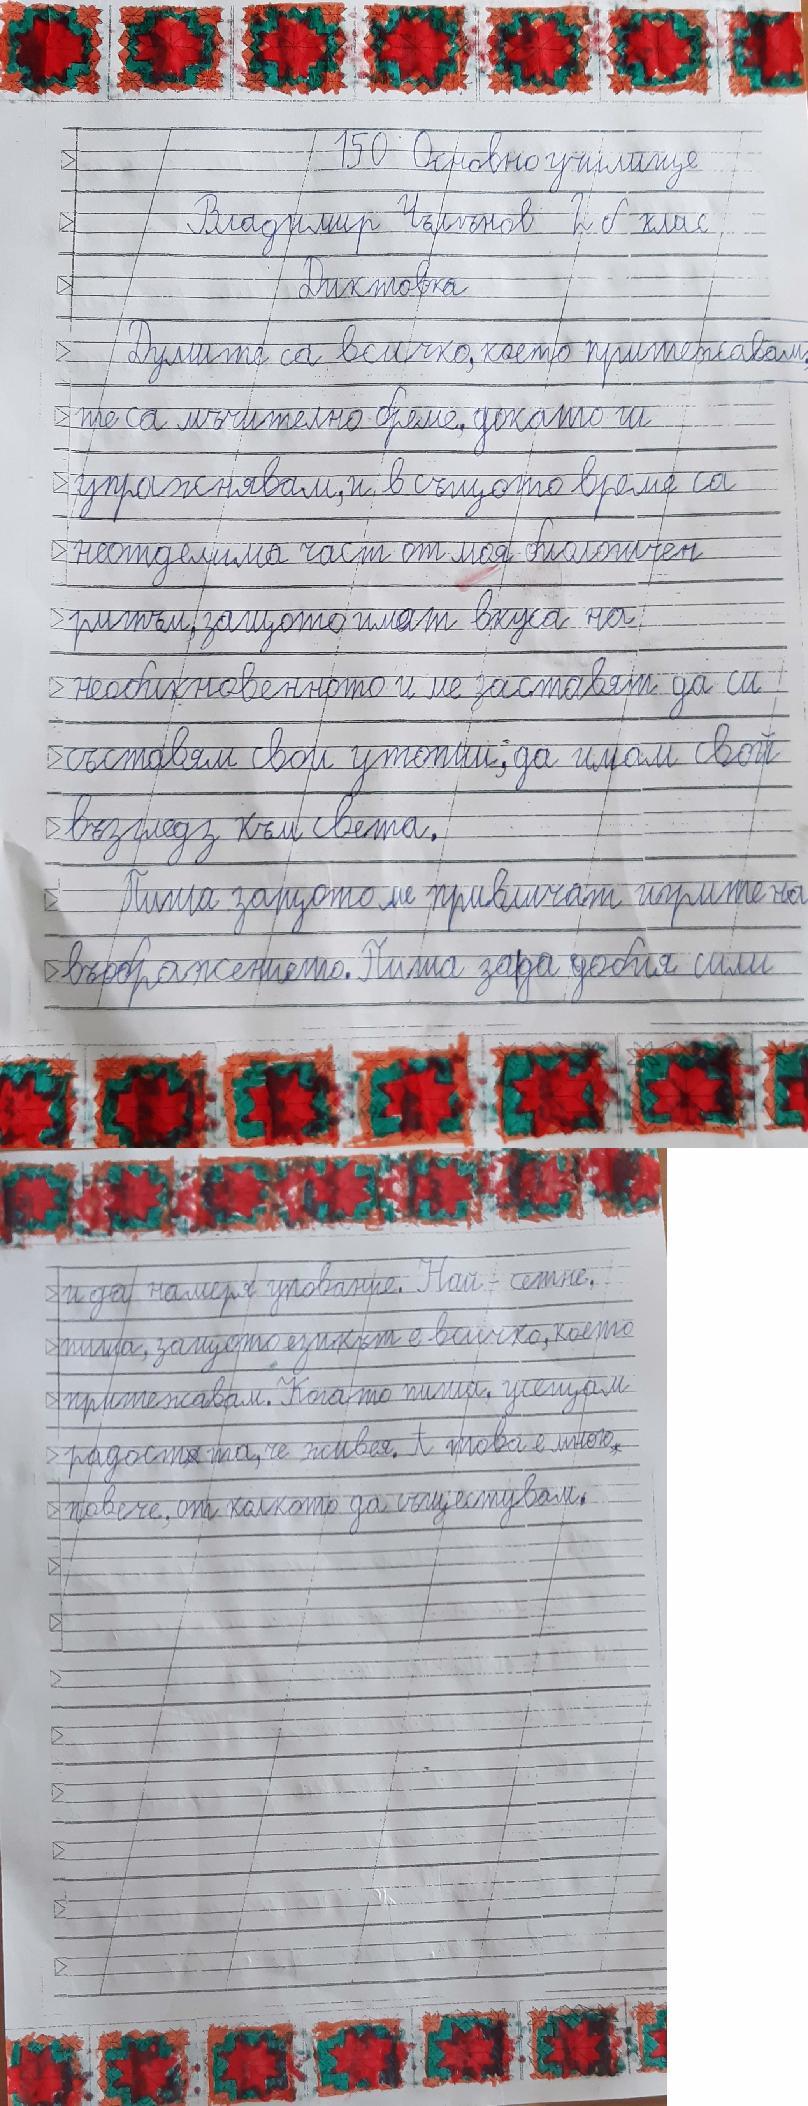 150 Основно училище
Владимир 2 б клас
Диктовка
Думите са всичко, което притежавам,
те са мъчително бреме, докато ги
упражнявам, и в същото време са
неотделима част от моя биологичен
ритъм, защото имат вкуса на
необикновенното и ме заставят да си
съставям свои утопии, да имам свой
възглед з към света.
Пиша защото ме привличат игрите на
въображението. Пиша за да добия сили
и да намеря упование. Най - сетне,
пиша, защото езикът е всичко, което
притежавам. Когато пиша, усещам
радостта, че живея. А това е много
повече, от колкото да съществувам.